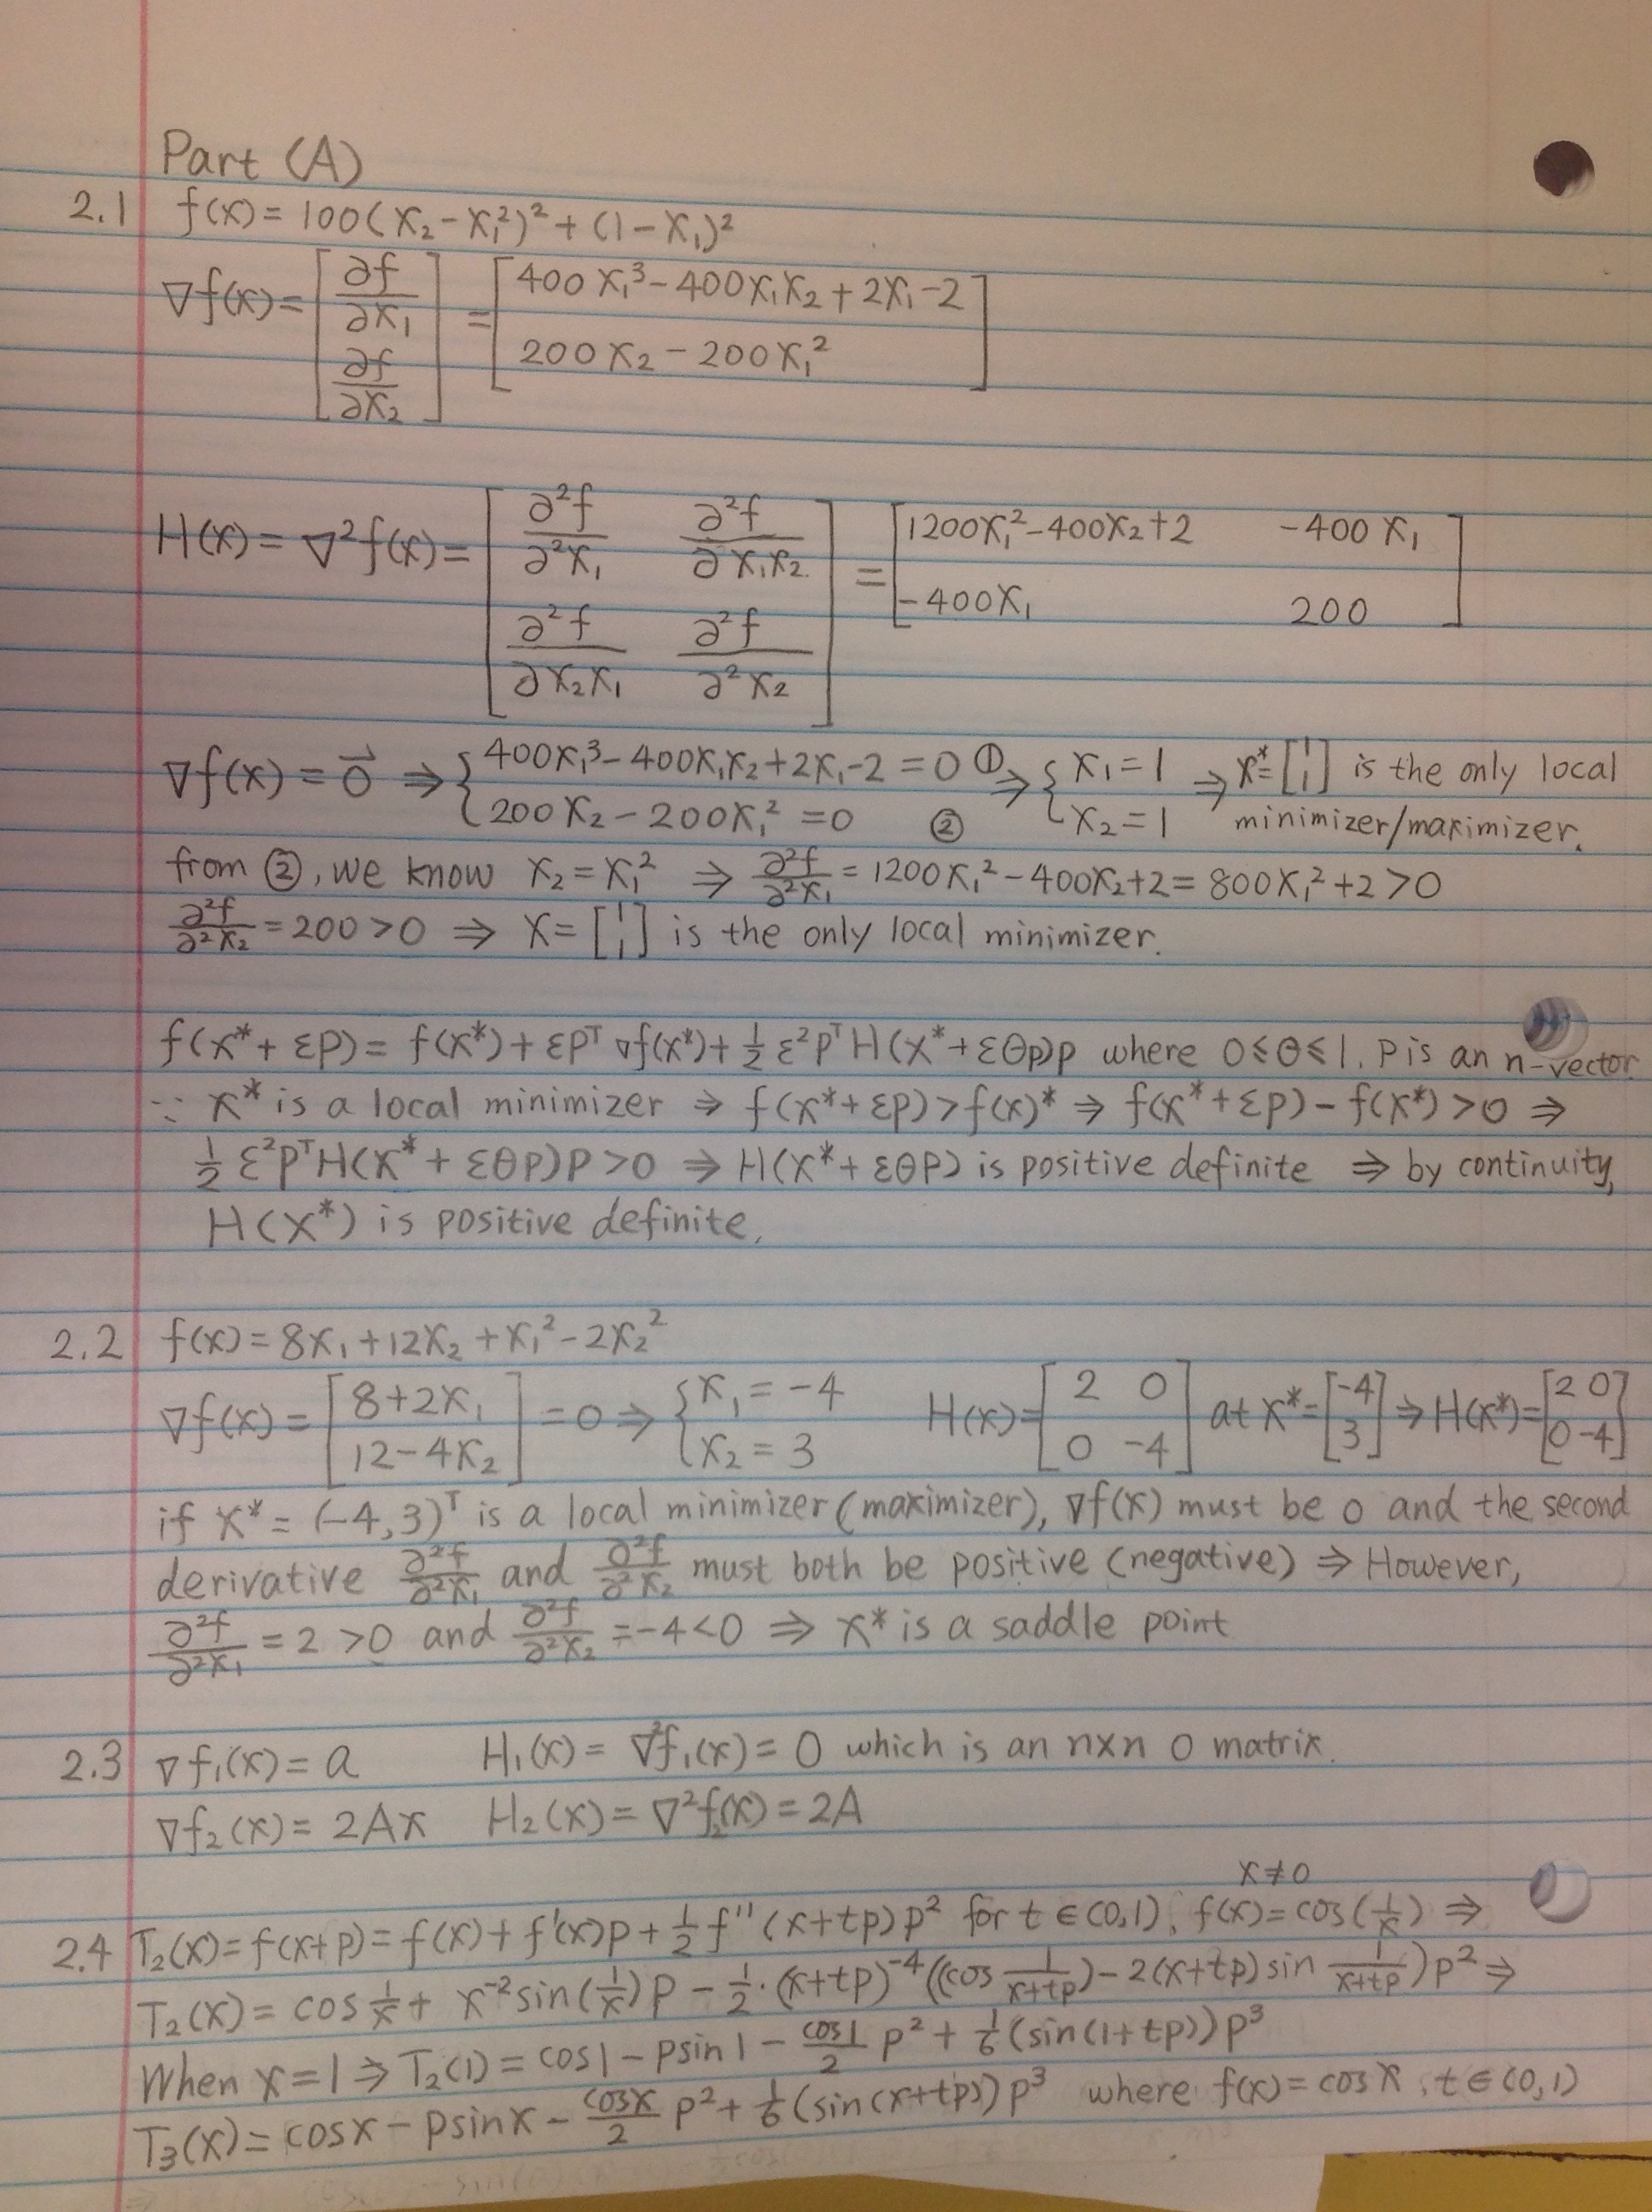 Part (A)
2.1 f(x) = 100(x₂-x₁²)² + (1-x₁)²
∇f(x) = [∂f/∂x₁ ; ∂f/∂x₂] = [400x₁³-400x₁x₂+2x₁-2 ; 200x₂-200x₁²]
H(x) = ∇²f(x) = [∂²f/∂²x₁ ∂²f/∂x₁x₂ ; ∂²f/∂x₂x₁ ∂²f/∂²x₂] = [1200x₁²-400x₂+2 -400x₁ ; -400x₁ 200]
∇f(x) = 0⃗ ⇒ {400x₁³-400x₁x₂+2x₁-2=0 ① ; 200x₂-200x₁²=0 ② ⇒ {x₁=1 ; x₂=1 ⇒ x*=[1 ; 1] is the only local minimizer/maximizer.
from ②, we know x₂=x₁² ⇒ ∂²f/∂²x₁ = 1200x₁²-400x₂+2 = 800x₁²+2>0
∂²f/∂²x₂ = 200>0 ⇒ x=[1 ; 1] is the only local minimizer.
f(x*+εp) = f(x*)+εpᵀ∇f(x*)+½ε²pᵀH(x*+εθp)p where 0≤θ≤1. P is an n-vector
∵ x* is a local minimizer ⇒ f(x*+εp)>f(x)* ⇒ f(x*+εp)-f(x*)>0 ⇒
½ε²pᵀH(x*+εθp)p>0 ⇒ H(x*+εθp) is positive definite ⇒ by continuity,
H(x*) is positive definite.
2.2 f(x) = 8x₁+12x₂+x₁²-2x₂²
∇f(x) = [8+2x₁ ; 12-4x₂] = 0 ⇒ {x₁=-4 ; x₂=3 H(x)=[2 0 ; 0 -4] at x*=[-4 ; 3] ⇒ H(x*)=[2 0 ; 0 -4]
if x* = (-4,3)ᵀ is a local minimizer (maximizer), ∇f(x) must be 0 and the second
derivative ∂²f/∂²x₁ and ∂²f/∂²x₂ must both be positive (negative) ⇒ However,
∂²f/∂²x₁ = 2>0 and ∂²f/∂²x₂ = -4<0 ⇒ x* is a saddle point
2.3 ∇f₁(x) = a H₁(x) = ∇²f₁(x) = 0 which is an n×n 0 matrix.
∇f₂(x) = 2Ax H₂(x) = ∇²f₂(x) = 2A
x≠0
2.4 T₂(x)=f(x+p)=f(x)+f'(x)p+½f''(x+tp)p² for t∈(0,1), f(x)=cos(1/x) ⇒
T₂(x) = cos 1/x + x⁻²sin(1/x)p - ½·(x+tp)⁻⁴((cos 1/(x+tp))-2(x+tp)sin 1/(x+tp))p² ⇒
When x=1 ⇒ T₂(1) = cos1-psin1-cos1/2 p²+1/6(sin(1+tp))p³
T₃(x) = cosx-psinx-cosx/2 p²+1/6(sin(x+tp))p³ where f(x)=cosx, t∈(0,1)